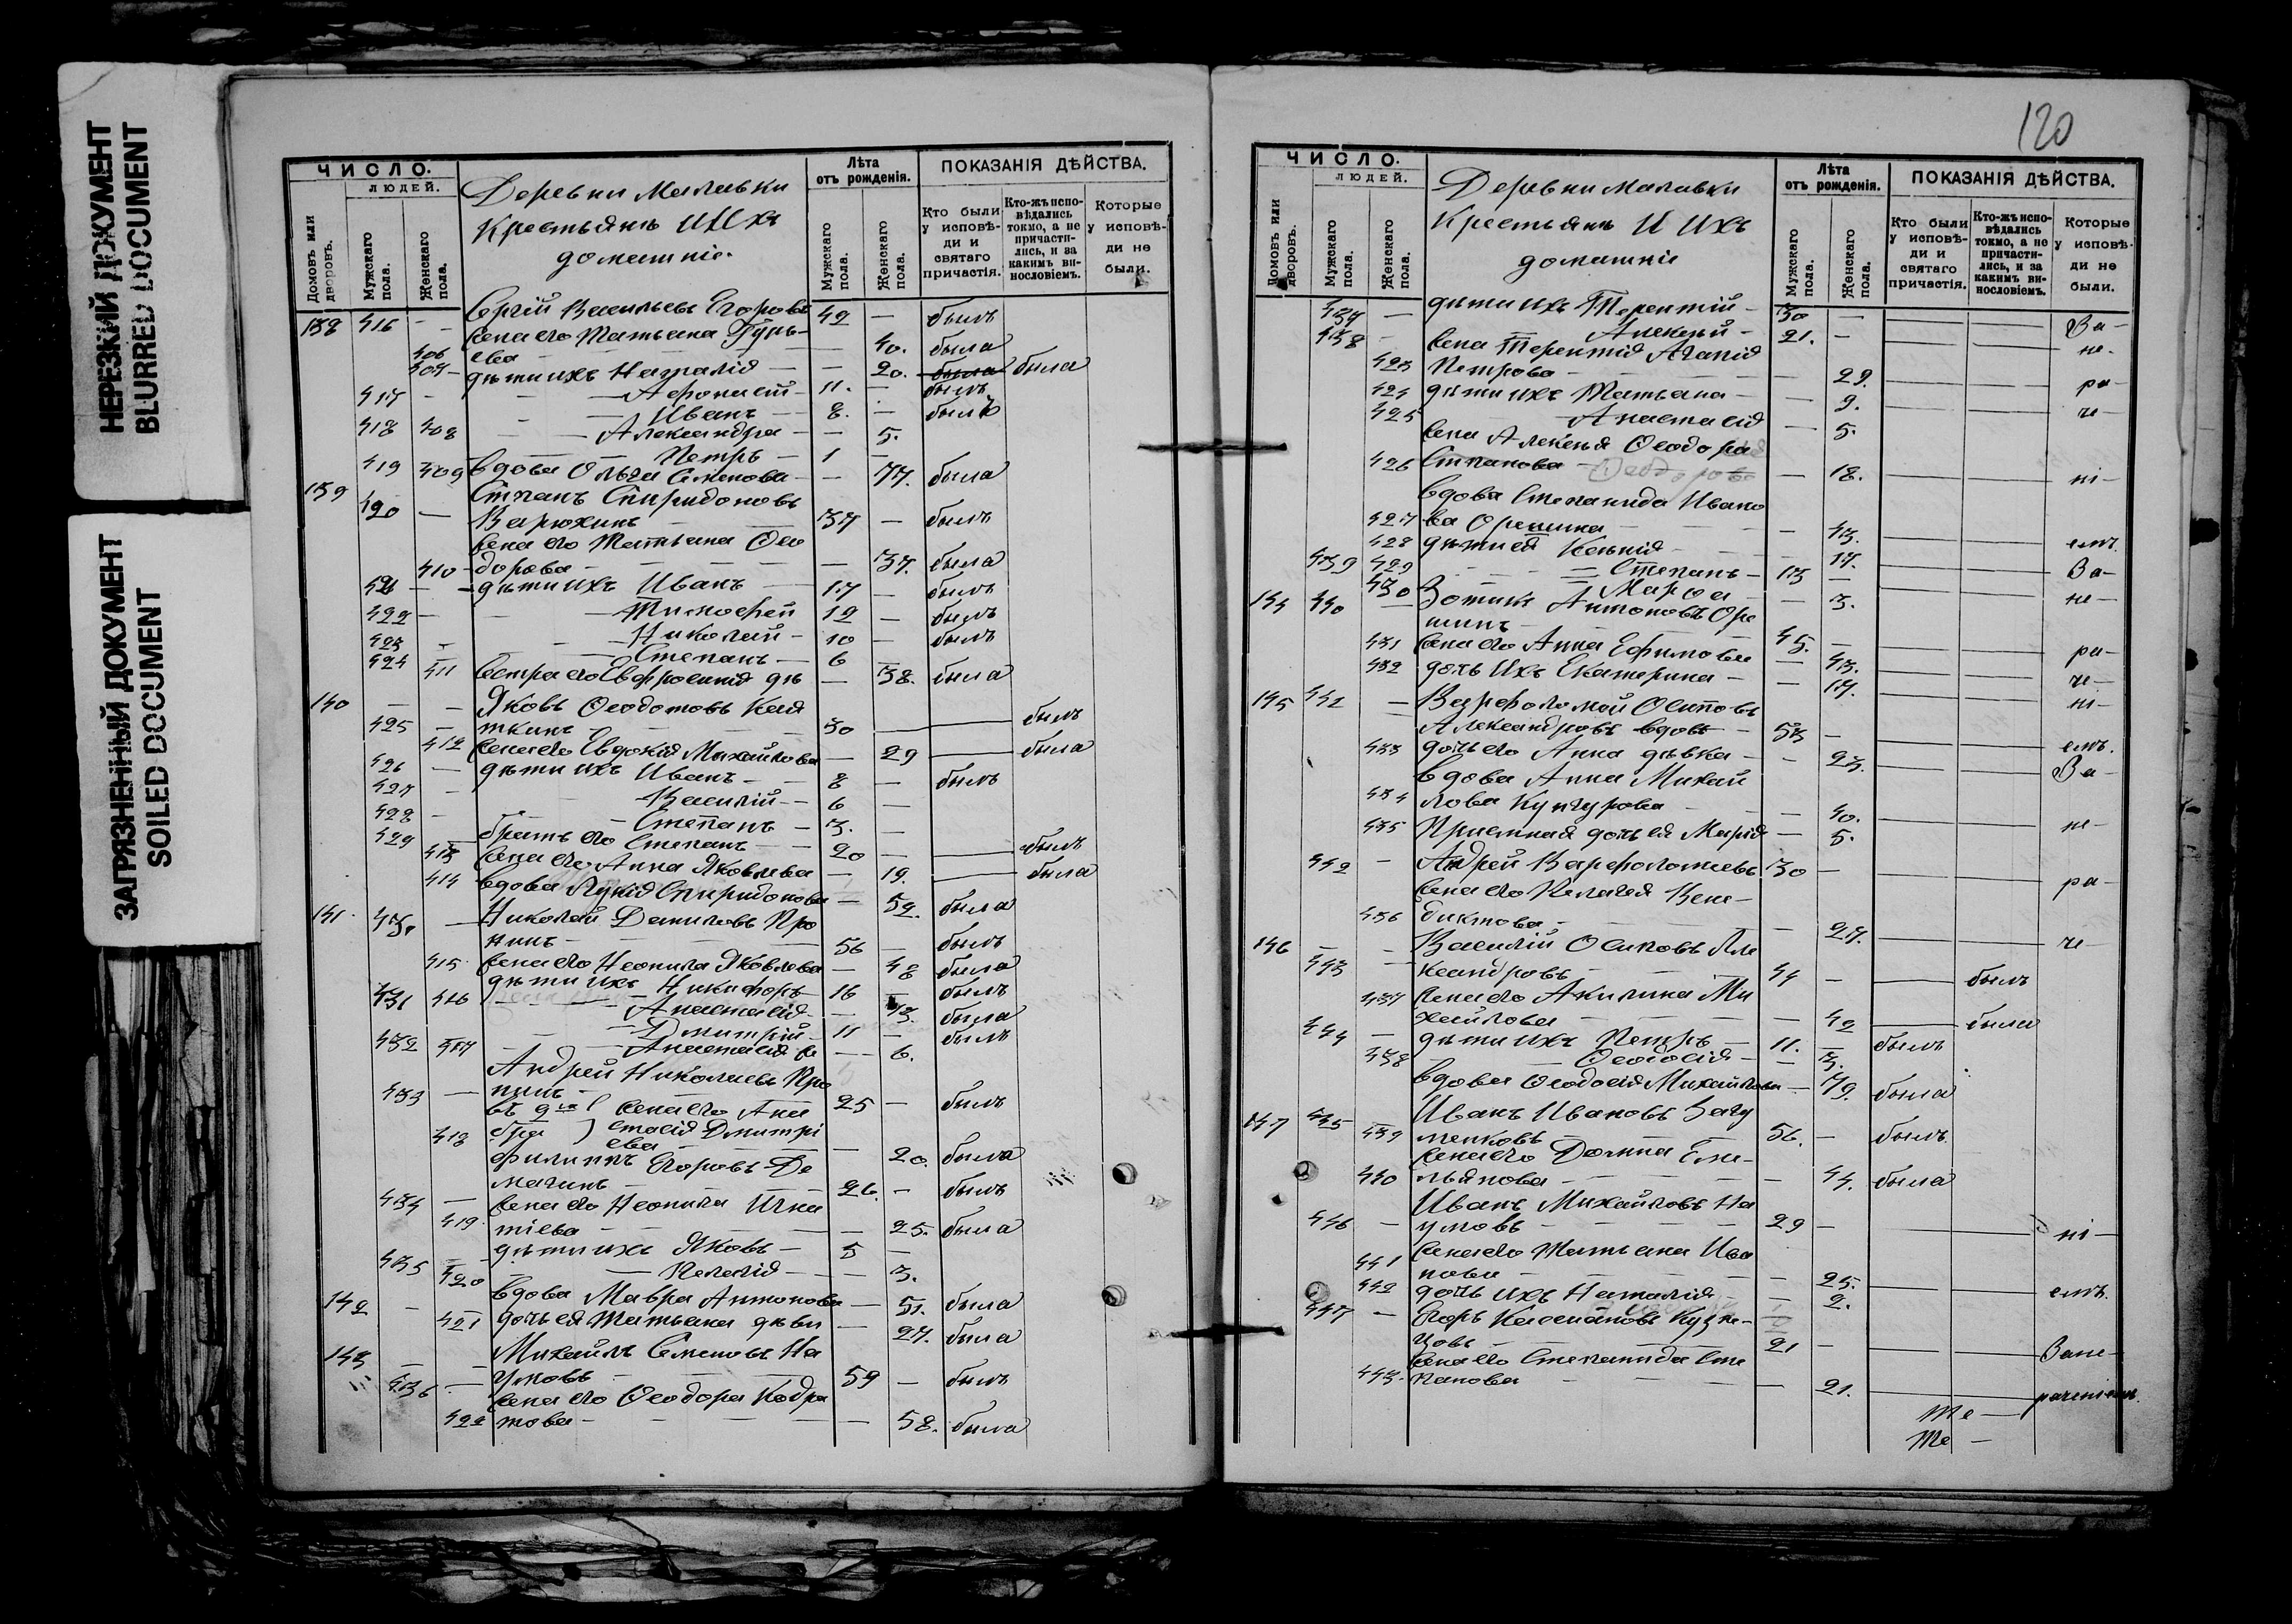 НЕРЕЗКИЙ ДОКУМЕНТ
BLURRED DOCUMENT
ЗАГРЯЗНЕННЫЙ ДОКУМЕНТ
SOILED DOCUMENT
ЧИСЛО.
ЛЮДЕЙ.
Домовъ или дворовъ.
Мужскаго пола.
Женскаго пола.
Деревни Малавки
Крестьянъ и Ихъ
домашніе.
Лѣта
отъ рожденія.
Мужскаго пола.
Женскаго пола.
ПОКАЗАНІЯ ДѢЙСТВА.
Кто были у исповѣди и святаго причастія.
Кто-жъ исповѣдались токмо, а не причастились, и за какимъ винословіемъ.
Которые у исповѣди не были.
138 416 — Сергій Васильевъ Егоровъ 42 — былъ
Жена его Татьяна
406 ева — 40. была
407 дѣти ихъ Наталія — 20. была была
417 — Афонасій 11. — былъ
— Иванъ 8. — былъ
418 408 — Александра — 5.
— Петръ — 1 —
419 409 вдова Ольга Семенова — 77. была
139 Степанъ Спиридоновъ
420 — Варюхинъ 37 — былъ
Жена его Татьяна Ѳео
410 дорова — 37. была
421 — дѣти ихъ Иванъ 17 — былъ
422 — Тимофей 12 — былъ
423 — Николай 10 — былъ
424 — Степанъ 6
411 Сестра его Евфросинія дѣ — 38. была
140 Яковъ Ѳеодотовъ
425 — ткинъ 30 — былъ
412 Жена его Евдокія Михайлова — 29 — была
426 — дѣти ихъ Иванъ 8 — былъ
427 — Василій 6 —
428 — Степанъ 3. —
429 братъ его Степанъ 20 — былъ
413 Жена его Анна Яковлева — 19. — была
414 вдова Лукія Спиридонова — 52. была
141. 430 — Николай Даниловъ Про
нинъ 56 — былъ
415 Жена его Неонила Яковлева — 48 была
дѣти ихъ Никифоръ 16 — былъ
431 416 Анастасія — 13. была
— Дмитрій 11 — былъ
432 417 — Анастасія — 6.
Андрей Николаевъ Про
433 — нинъ 25 — былъ
въ 2й бра } Жена его Ана
418 стасія Дмитрі
ева — 20. была
Филиппъ Егоровъ Де
434 — мачинъ 26. — былъ
Жена его Неонила Игна
419 тіева — 25. была
435 дѣти ихъ Яковъ 5 —
420 — Пелагія — 3.
142 — вдова Мавра Антонова — 51. была
421 дочь ея Татьяна дѣви — 27. была
143 Михаилъ Семеновъ На
436 — умовъ 59 — былъ
Жена его Ѳеодора Кодра
422 това — 58. была
120
ЧИСЛО.
ЛЮДЕЙ.
Домовъ или дворовъ.
Мужскаго пола.
Женскаго пола.
Деревни Малавки
Крестьянъ И ихъ
домашніе
Лѣта
отъ рожденія.
Мужскаго пола.
Женскаго пола.
ПОКАЗАНІЯ ДѢЙСТВА.
Кто были у исповѣди и святаго причастія.
Кто-жъ исповѣдались токмо, а не причастились, и за какимъ винословіемъ.
Которые у исповѣди не были.
437 — дѣти ихъ Терентій — 30 — За-
438 — Алексѣй — 21. — не-
Жена Терентія Агапія
423 Петрова — 29. ра-
424 дѣти ихъ Татьяна — 9. че-
425 Анастасія — 5.
Жена Алексѣя Ѳеодора
426 Степанова — 18. ні-
вдова Степанида Ивано
427 ва Орешина — 43. емъ.
428 дѣти ея Ксенія — 17. За-
439 429 — Степанъ — 13 — не-
430 Марѳа — 3.
144 440 — Зотикъ Антоновъ Оре
шинъ 45. — ра-
431 Жена его Анна Ефимова — 43. че-
432 дочь Ихъ Екатерина — 17. ні-
145 441 — Варфоломей Осиповъ
Александровъ вдовъ 53 — емъ.
433 дочь его Анна дѣвка — 23. За-
вдова Анна Михай
434 лова Кунгурова — 40. не-
435 Приемная дочь ея Марія — 5.
442 — Андрей Варфоломеевъ 30 — ра-
Жена его Пелагея Вене-
436 диктова — 27. че
146 — Василій Осиповъ Але
443 — ксандровъ 44 — былъ
437 Жена его Акилина Ми
хайлова — 42 — была
444 — дѣти ихъ Петръ — 11. — былъ
438 — Ѳеодосія — 3.
вдова Ѳеодосія Михайлова — 79. была
147 445 Иванъ Ивановъ
439 менковъ 56. — былъ
Жена его Домна Еме-
440 льянова — 44. была
Иванъ Михайловъ На
446 — умовъ 29 — ні-
Жена его Татьяна Ива
441 нова — 25. емъ.
442 дочь ихъ Наталія — 2.
447 — Егоръ Касьяновъ Кузне-
цовъ 21 — Зане-
Жена его Степанида Сте
443. панова — 21. раченіемъ
Те —
Те —